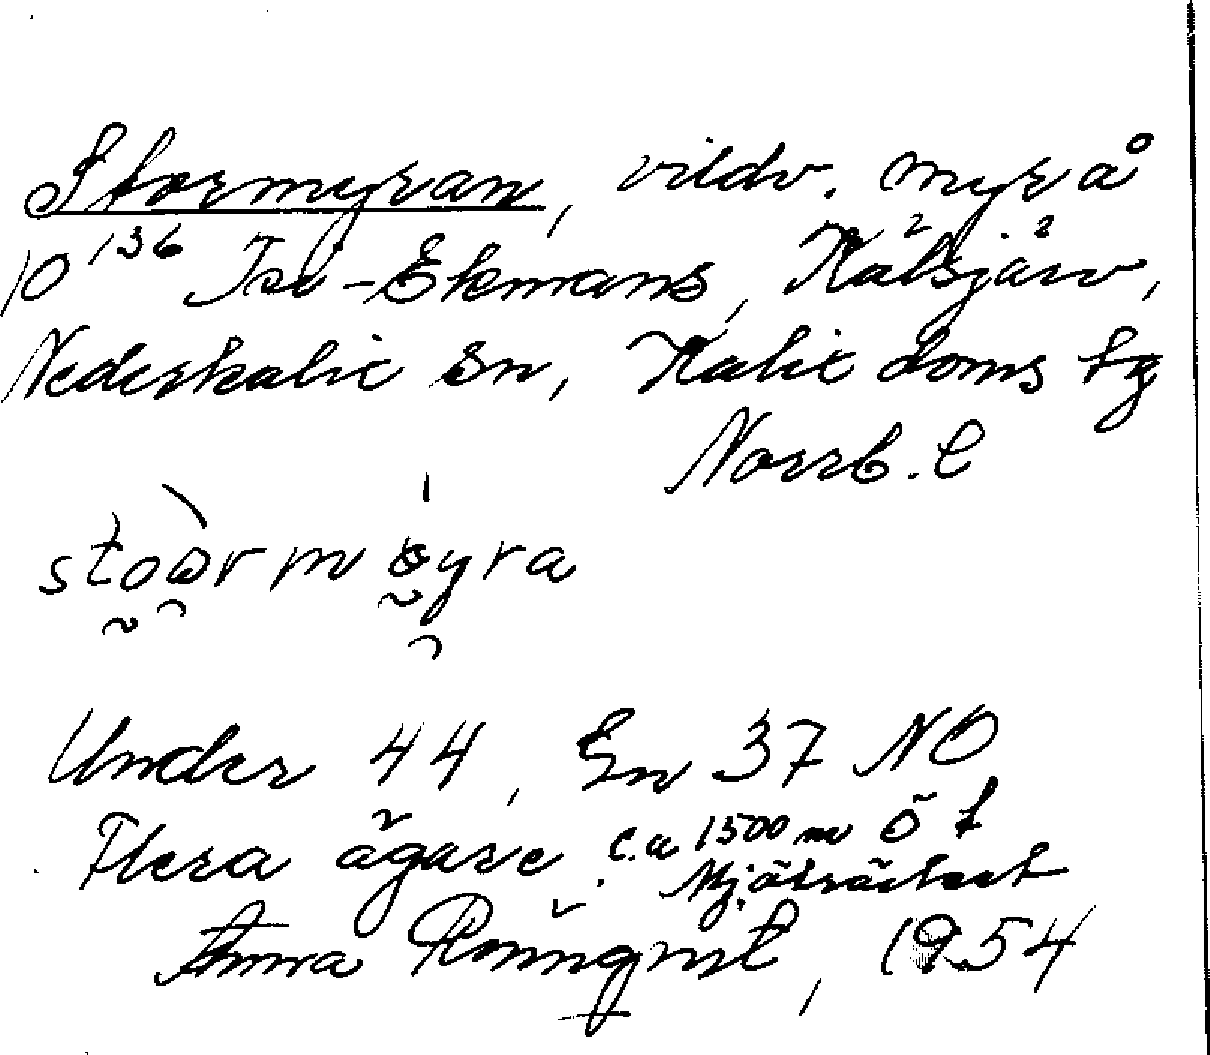 Stormyran, vildv. myr å
10¹³⁶ Isi-Ekmans, Kälsjärv,
Nederkalix sn, Kalix doms tg
Norrb. l
stoωr møyra
Under 44, En 37 NO
Flera ägare. c:a 1500 m ö f
Anna Rönnqvist, 1954